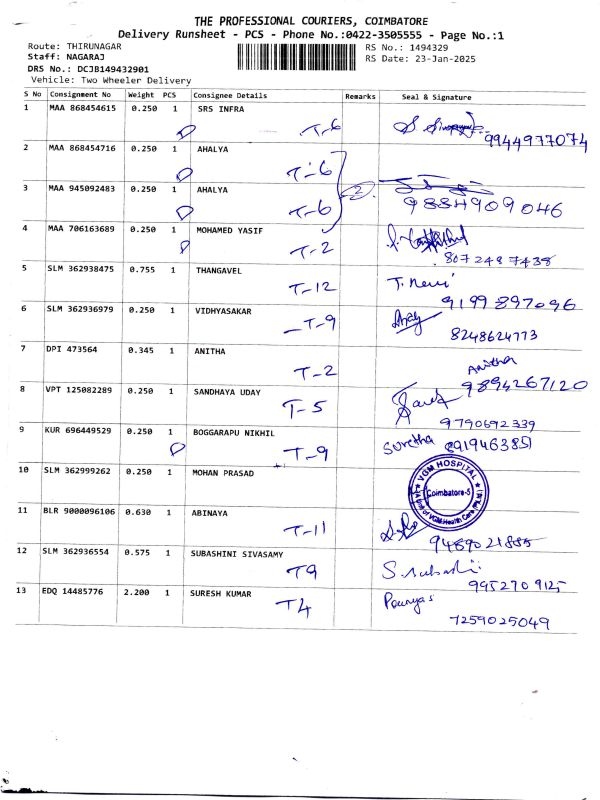 THE PROFESSIONAL COURIERS, COIMBATORE
Delivery Runsheet - PCS - Phone No.:0422-3505555 - Page No.:1
Route: THIRUNAGAR RS No.: 1494329
Staff: NAGARAJ RS Date: 23-Jan-2025
DRS No.: DCJB149432901
Vehicle: Two Wheeler Delivery
S No Consignment No Weight PCS Consignee Details Remarks Seal & Signature
1 MAA 868454615 0.250 1 SRS INFRA
T-6 9944977074
2 MAA 868454716 0.250 1 AHALYA
T-6
3 MAA 945092483 0.250 1 AHALYA 2
T-6 9884909046
4 MAA 706163689 0.250 1 MOHAMED YASIF
T-2 8072487438
5 SLM 362938475 0.755 1 THANGAVEL
T-12 9199897096
6 SLM 362936979 0.250 1 VIDHYASAKAR
T-9 8248624773
7 DPI 473564 0.345 1 ANITHA Anitha
T-2 9894267120
8 VPT 125082289 0.250 1 SANDHAYA UDAY
T-5 9790692339
9 KUR 696449529 0.250 1 BOGGARAPU NIKHIL Suretha 891946385
T-9
10 SLM 362999262 0.250 1 MOHAN PRASAD VGM HOSPITAL
Coimbatore-5
11 BLR 9000096106 0.630 1 ABINAYA
T-11 9489021885
12 SLM 362936554 0.575 1 SUBASHINI SIVASAMY S.Subashi
T9 9952709125
13 EDQ 14485776 2.200 1 SURESH KUMAR
T4 7259025049